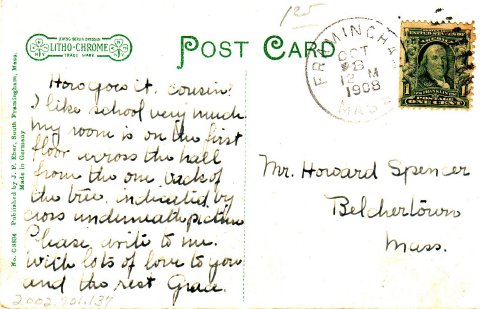 125
JUNG BERLIN DRESDEN
LITHO-CHROME
TRADE MARK
POST CARD
FRAMINGHAM
OCT
8
12 M
1908
MASS
FRANKLIN
POSTAGE
ONE CENT
No. C 8804 Published by J. F. Eber, South Framingham, Mass.
Made in Germany
How goes it, cousin?
I like school very much
my room is on the first
floor across the hall
from the one back of
the tree, indicated by
cross underneath picture
Please write to me.
With lots of love to you
and the rest Grace.
Mr. Howard Spencer
Belchertown
Mass.
2002.701.137